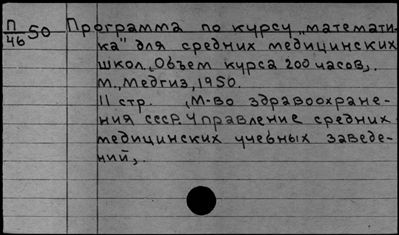 П/46 50 Программа по курсу „математи-
ка" для средних медицинских
школ. /Объем курса 200 часов/.
М., Медгиз, 1950.
11 стр. /М-во здравоохране-
ния СССР. Управление средних
медицинских учебных заведе-
ний/.